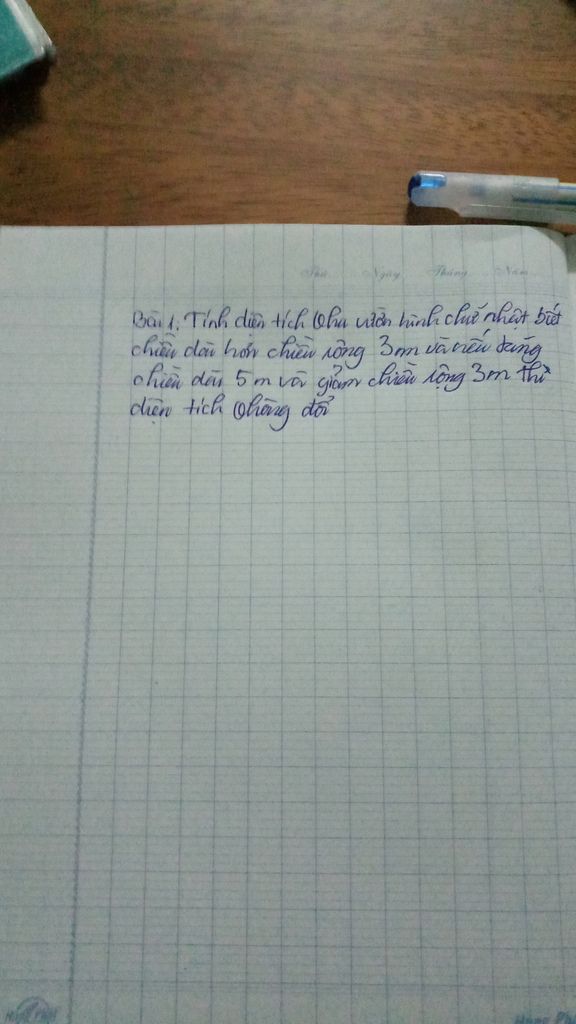 Thứ Ngày Tháng Năm
Bài 1. Tính diện tích khu vườn hình chữ nhật biết
chiều dài hơn chiều rộng 3m và nếu tăng
chiều dài 5m và giảm chiều rộng 3m thì
diện tích không đổi